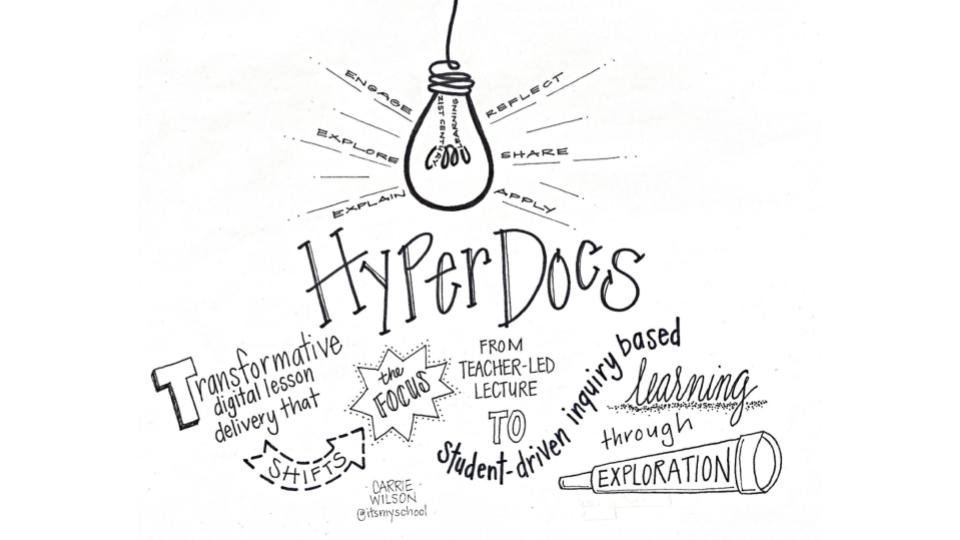 ENGAGE
EXPLORE
EXPLAIN
REFLECT
SHARE
APPLY
21ST CENTURY
LEARNING
HyperDocs
Transformative
digital lesson
delivery that
SHIFTS
the
FOCUS
FROM
TEACHER-LED
LECTURE
TO
student-driven inquiry based
learning
through
EXPLORATION
CARRIE
WILSON
@itsmyschool